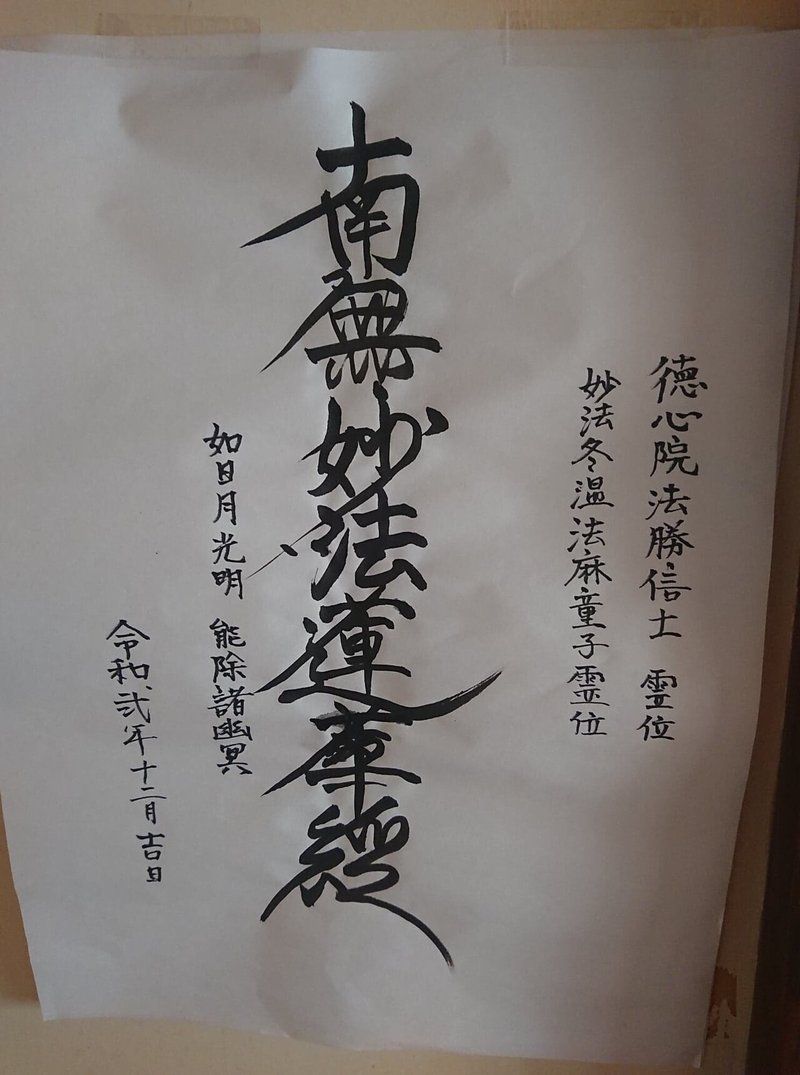 徳心院法勝信士 霊位
妙法冬温法麻童子霊位
南無妙法蓮華経
如日月光明 能除諸幽冥
令和弐年十二月吉日